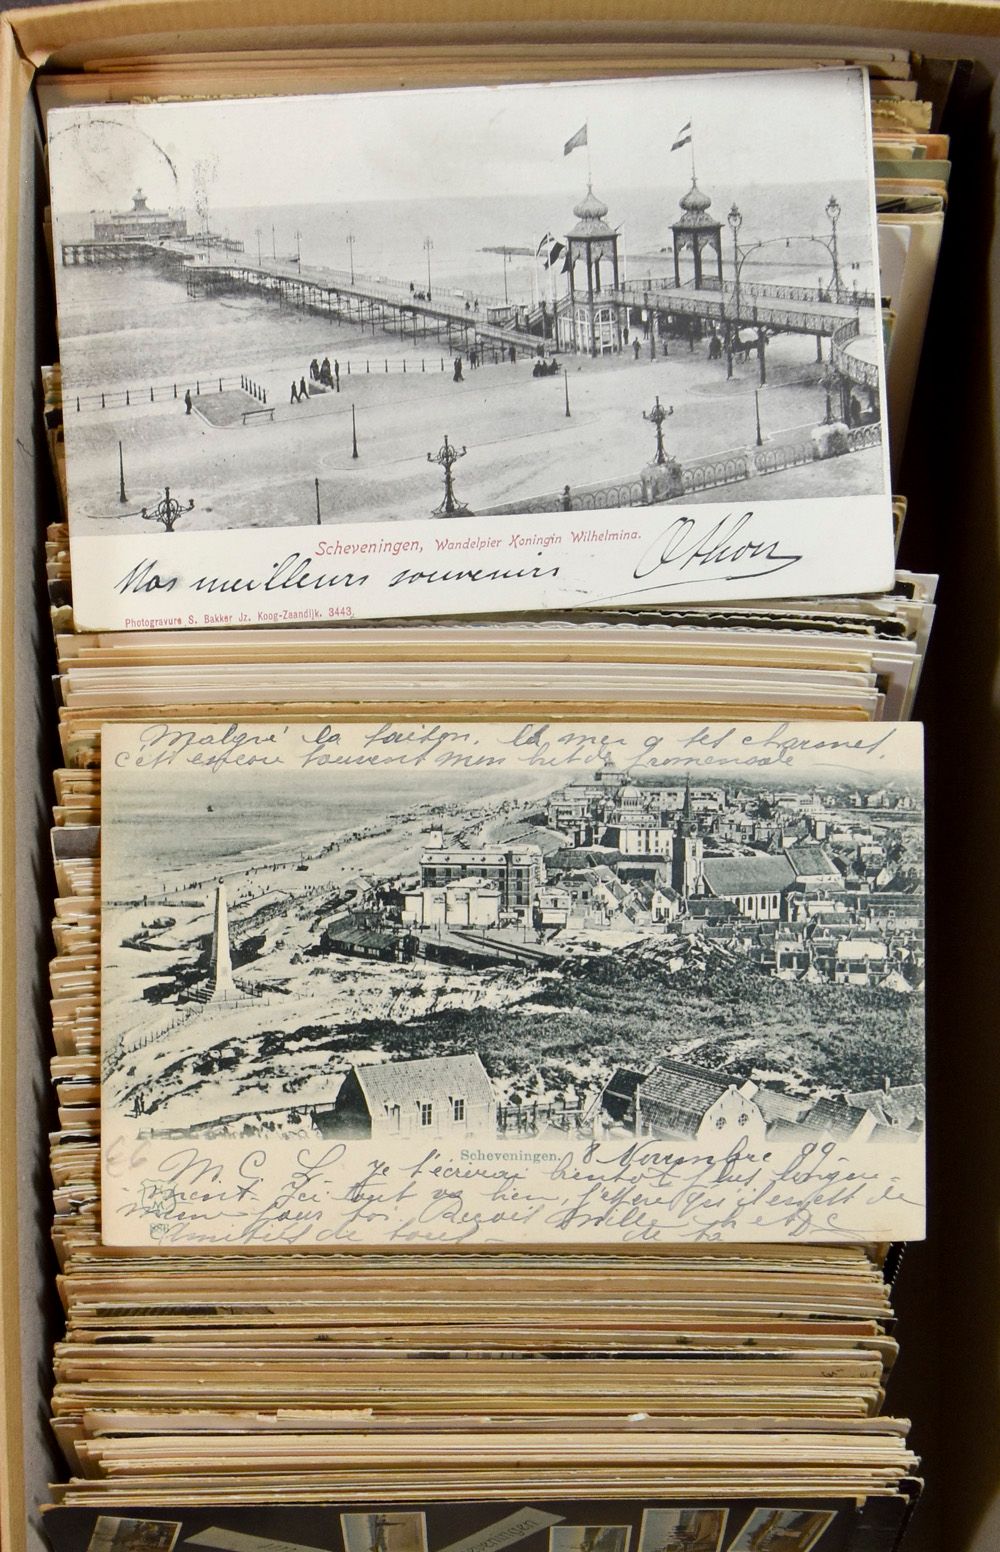 Scheveningen, Wandelpier Koningin Wilhelmina.
Nos meilleurs souvenirs Othon
Photogravure S. Bakker Jz. Koog-Zaandijk. 3443.
Malgré la saison, la mer a ses charmes,
c'est encore souvent mon but de promenade
Scheveningen. 8 Novembre 99-
M C L Je t'écrirai bientôt plus longue-
ment. Ici tout va bien, j'espère qu'il en est de
même pour toi. Reçois mille
Amitiés de tous
de ta
Scheveningen